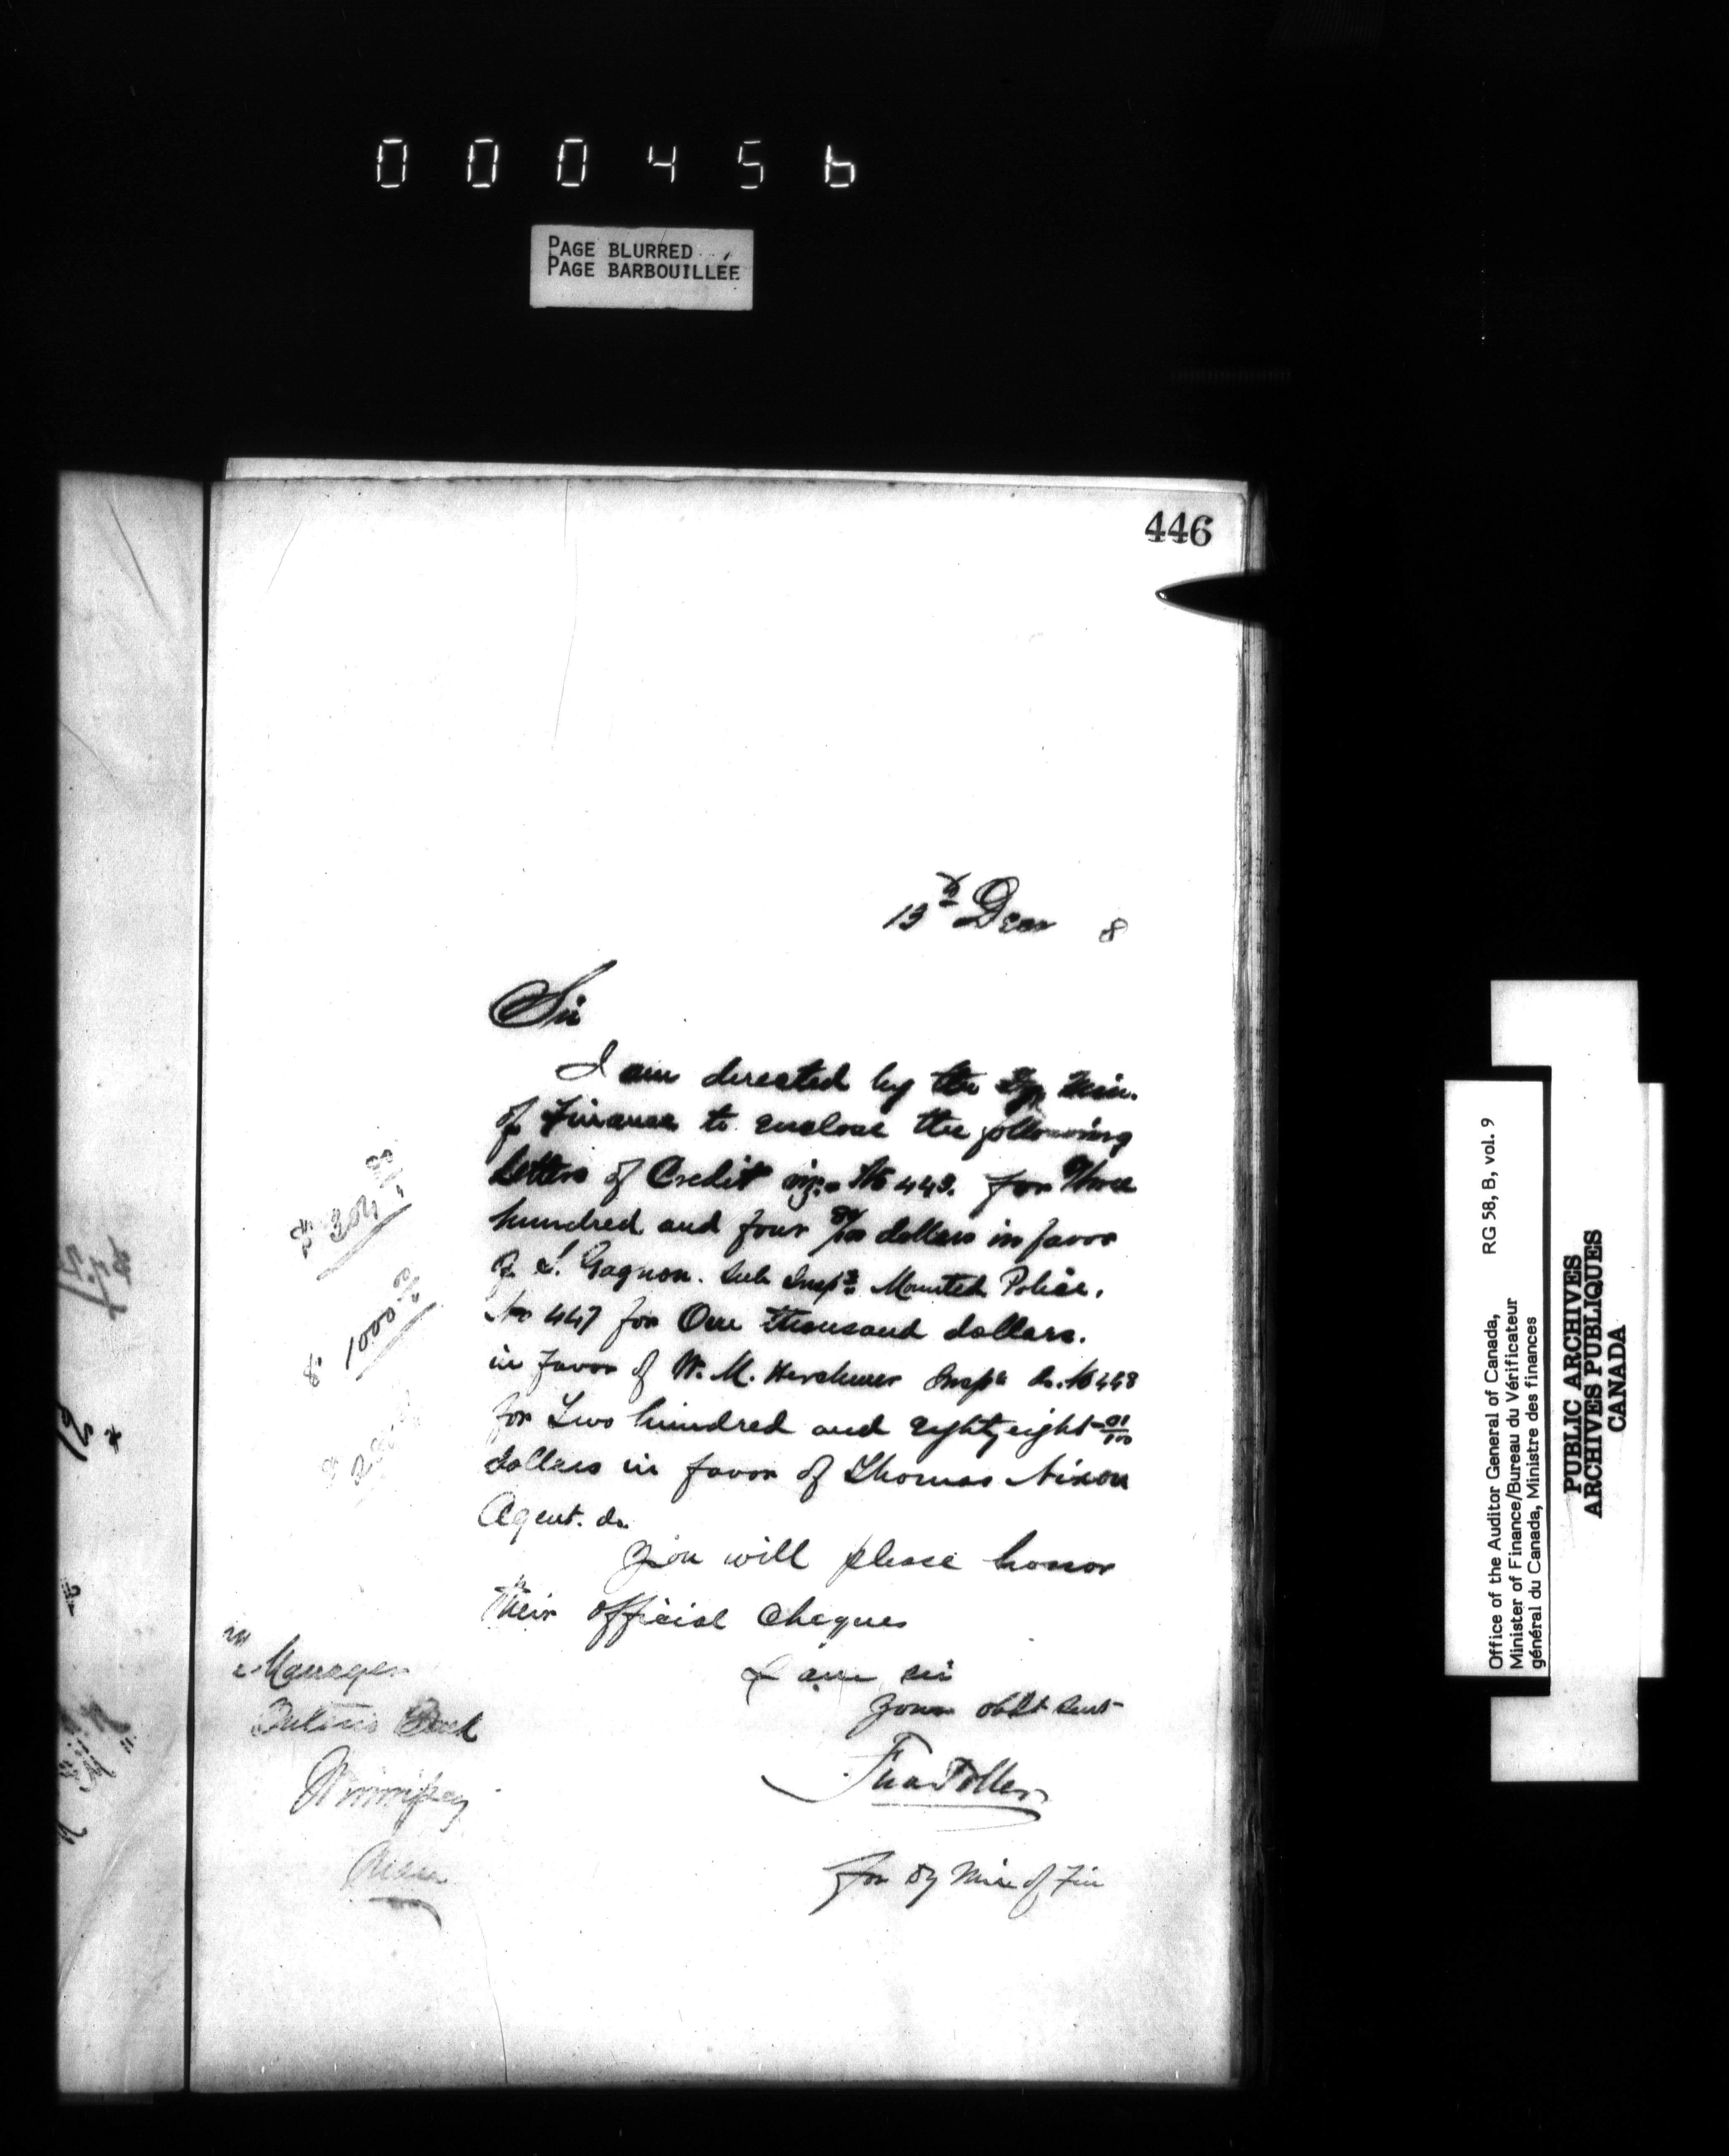 000456
PAGE BLURRED
PAGE BARBOUILLÉE
446
13th Decr 8
Sir
I am directed by the Dy Min.
of Finance to enclose the following
letters of Credit viz. No 449. for Three
hundred and four 84/100 dollars in favor
of S. Gagnon. Sub Inspr Mounted Police.
No 447 for One thousand dollars.
in favor of W. M. Herchmer Inspr do. No 448
for Two hundred and Eighty eight 01/100
dollars in favor of Thomas Nixon
Agent. do.
You will please honor
their official Cheques
I am, sir
your obdt Servt
for Dy Min of Fin
Manager
Ontario Bank
Winnipeg
$ 304
$ 1000
Office of the Auditor General of Canada, RG 58, B, vol. 9
Minister of Finance/Bureau du Vérificateur
général du Canada, Ministre des finances
PUBLIC ARCHIVES
ARCHIVES PUBLIQUES
CANADA